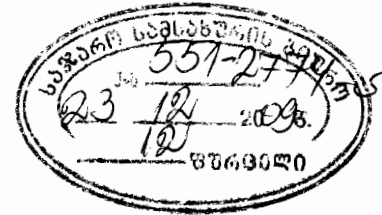 საჯარო სამსახურის ბიურო
№ 551-277/
23 12 2009წ.
12 ფურცელი